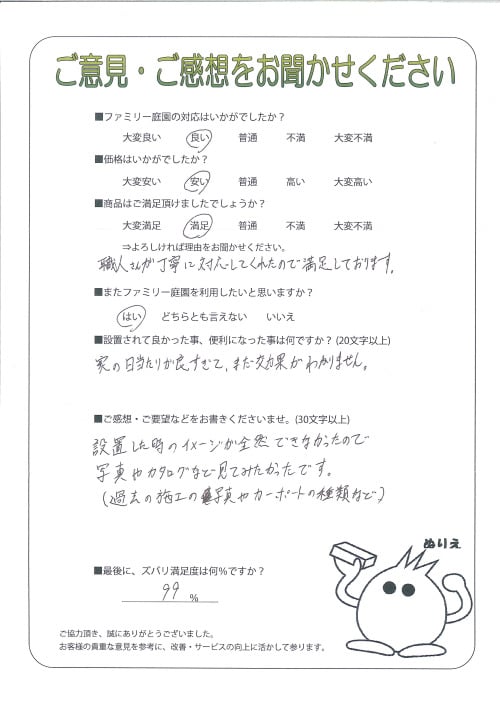 ご意見・ご感想をお聞かせください
■ファミリー庭園の対応はいかがでしたか？
大変良い 良い 普通 不満 大変不満
■価格はいかがでしたか？
大変安い 安い 普通 高い 大変高い
■商品はご満足頂けましたでしょうか？
大変満足 満足 普通 不満 大変不満
⇒よろしければ理由をお聞かせください。
職人さんが丁寧に対応してくれたので満足しております。
■またファミリー庭園を利用したいと思いますか？
はい どちらとも言えない いいえ
■設置されて良かった事、便利になった事は何ですか？(20文字以上)
家の日当たりが良すぎて、まだ効果がわかりません。
■ご感想・ご要望などをお書きくださいませ。(30文字以上)
設置した時のイメージが全然できなかったので
写真やカタログなど見てみたかったです。
(過去の施工の写真やカーポートの種類など)
■最後に、ズバリ満足度は何%ですか？
99 %
ぬりえ
ご協力頂き、誠にありがとうございました。
お客様の貴重な意見を参考に、改善・サービスの向上に活かして参ります。